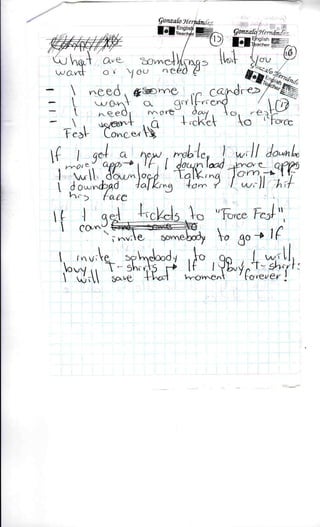 Gonzalo Hernández
English Teacher
Gonzalo Hernández
English Teacher
15
16
What are somethings that you
want or you need
Gonzalo Hernández
English Teacher
- I need some candies
- I want a girlfriend
- I need more day to rest
- I want a ticket to "Force
Fest Concerts
17
If I get a new mobile, I will downlo
more apps → If I download more apps
I will download talking tom → If
I download talking tom I will hit
his face
If I get tickets to "Force Fest",
I can
invite somebody to go → If
I invite somebody to go I will
buy T-shirts → If I buy T-shirt:
I will save that moment forever!